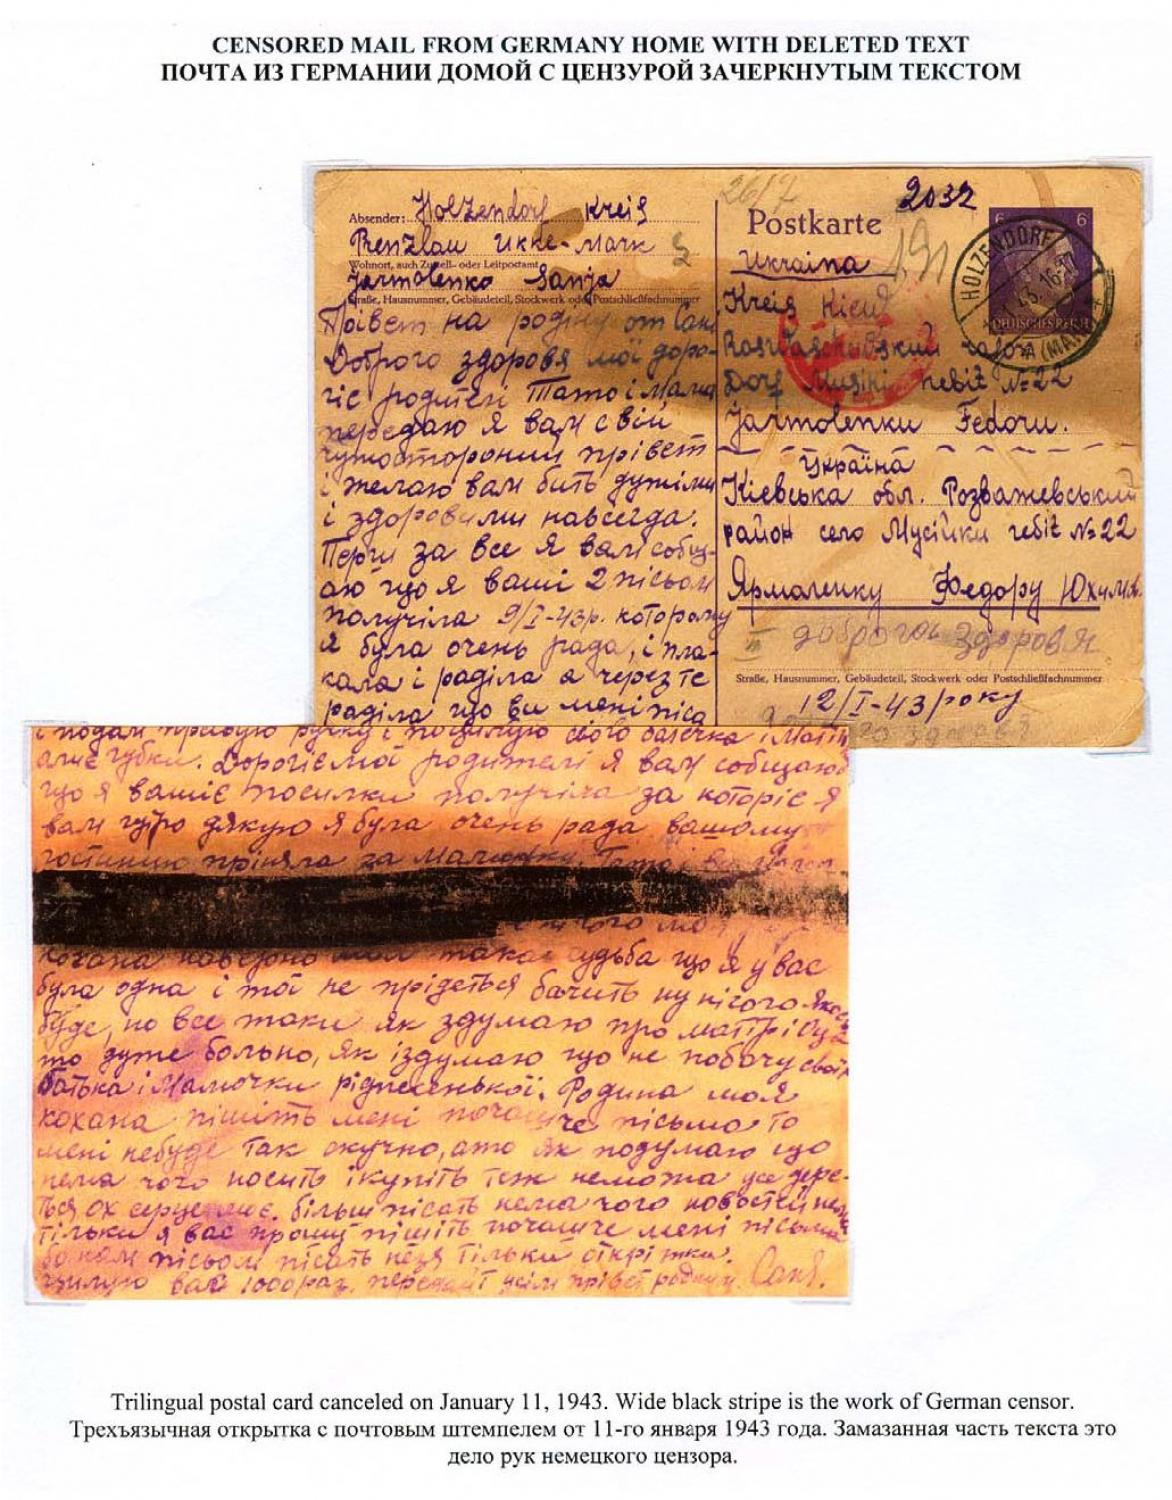 CENSORED MAIL FROM GERMANY HOME WITH DELETED TEXT
ПОЧТА ИЗ ГЕРМАНИИ ДОМОЙ С ЦЕНЗУРОЙ ЗАЧЕРКНУТЫМ ТЕКСТОМ
Absender: Holzendorf Kreis
Prenzlau Ukke-Mark
Wohnort, auch Zustell- oder Leitpostamt
Jarmolenko Sanja
Straße, Hausnummer, Gebäudeteil, Stockwerk oder Postschließfachnummer
Прівет на родіну от Сані
Доброго здоровя мої доро-
гіє родітелі Тато і Мама
передаю я вам свій
чужостороний прівет
і желаю вам бить дужіми
і здоровими навсегда.
Перш за все я вам собщ-
аю що я ваші 2 пісьом
получіла 9/I-43р. которому
я була очень рада, і пла-
кала і раділа а через те
раділа що ви мені піса
26/7
2032
Postkarte
191
6 6
HOLZENDORF
DEUTSCHES REICH
Ukraina
Kreis Kiew
rajon
Dorf Musiki hebit №22
Jarmolenku Fedoru.
Україна
Кієвська обл. Розважевський
район село Мусійки гебіт №22
Ярмаленку Федору Юхим.
доброго здоровя
Straße, Hausnummer, Gebäudeteil, Stockwerk oder Postschließfachnummer
12/I-43 року
і подам правую ручку і поцилую свого батечка і
губки. Дорогіє мої родителі я вам собщаю
що я вашіє посилки получіла за которіє я
вам щіро дякую я була очень рада вашому
гостинцю пріняла за Мамочку. Тато і
кохана наверно моя така судьба що я у вас
була одна і тої не прідеться бачить ну нічого якось
буде, но все таки як здумаю про
то дуже больно, як іздумаю що не побачу своїх
батька і Мамочки ріднесенької. Родина моя
кохана пішіть мені почащче пісьма то
мені небуде так скучно, ато як подумаю що
нема чого носить ікупіть теж неможна усе дере-
ться ох серце моє. більш пісать нема чого новостей нема
тільки я вас прошу пішіть почащче мені пісьма
бо нам пісьом пісать незя тільки откритки.
цилую вас 1000 раз. передайт усім прівет родним. Саня.
Trilingual postal card canceled on January 11, 1943. Wide black stripe is the work of German censor.
Трехъязычная открытка с почтовым штемпелем от 11-го января 1943 года. Замазанная часть текста это
дело рук немецкого цензора.